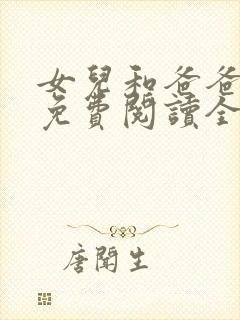 女兒和爸爸
免費閱讀全
唐聞生